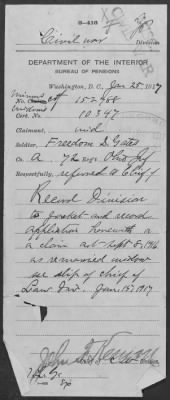 3-416
Civil war
Division
DEPARTMENT OF THE INTERIOR
BUREAU OF PENSIONS
Washington, D. C., Jan 25, 1917
No. 152988
Cert. No. 10397
Claimant, wid
Soldier, Freedom S. Gates
Co. A 72 Regt. Ohio Inf
Respectfully, referred to Chief
Record Division
to jacket and record
application herewith a
a claim act Sept 8, 1916
as remarried widow
see slip of chief of
Law Div. Jan. 15, 1917
John